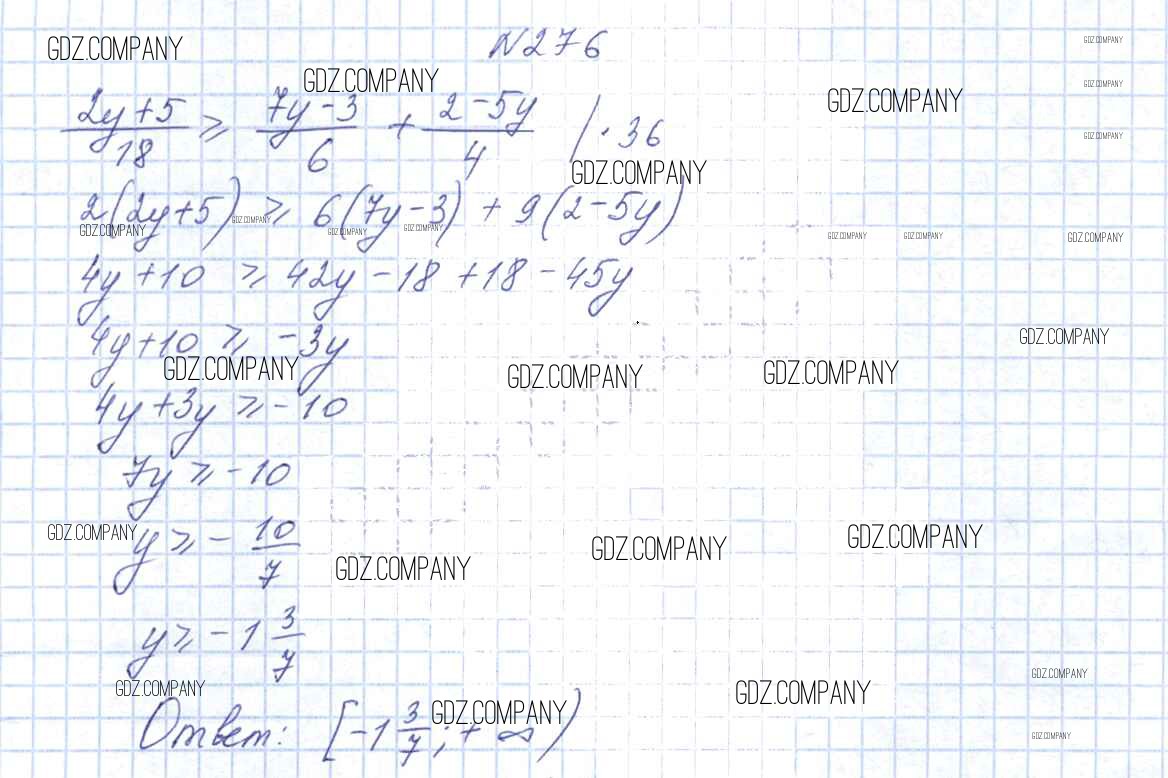 N276
GDZ.COMPANY
GDZ.COMPANY
GDZ.COMPANY
GDZ.COMPANY
GDZ.COMPANY
GDZ.COMPANY
(2y+5)/18 ≥ (7y-3)/6 + (2-5y)/4 / · 36
GDZ.COMPANY
2(2y+5) ≥ 6(7y-3) + 9(2-5y)
GDZ.COMPANY
GDZ.COMPANY
GDZ.COMPANY
GDZ.COMPANY
GDZ.COMPANY
GDZ.COMPANY
GDZ.COMPANY
4y+10 ≥ 42y-18+18-45y
4y+10 ≥ -3y
GDZ.COMPANY
GDZ.COMPANY
GDZ.COMPANY
GDZ.COMPANY
4y+3y ≥ -10
7y ≥ -10
y ≥ - 10/7
GDZ.COMPANY
GDZ.COMPANY
GDZ.COMPANY
GDZ.COMPANY
y ≥ -1 3/7
GDZ.COMPANY
GDZ.COMPANY
GDZ.COMPANY
Ответ: [-1 3/7; +∞)
GDZ.COMPANY
GDZ.COMPANY